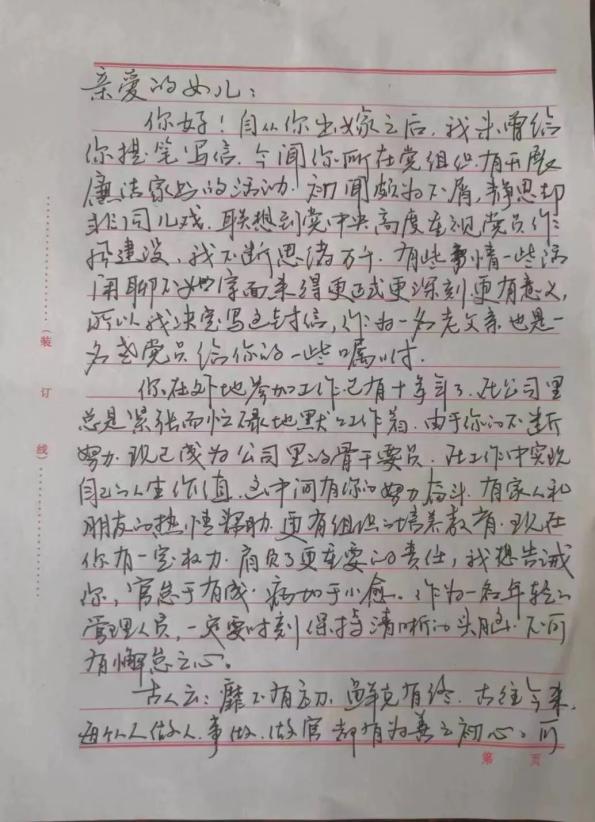 亲爱的女儿：
你好！自从你出嫁之后，我未曾给
你提笔写信，今闻你所在党组织有开展
廉洁家书的活动，初闻颇为不屑，静思却
非同儿戏，联想到党中央高度重视党员作
风建设，我不断思绪万千，有些事情一些话
闲聊不如字面来得更正式更深刻更有意义，
所以我决定写这封信，作为一名老父亲也是一
名老党员给你的一些嘱咐．
你在外地参加工作已有十年了，在公司里
总是紧张而忙碌地默默工作着，由于你的不断
努力，现已成为公司里的骨干要员，在工作中实现
自己的人生价值，这中间有你的努力奋斗，有家人和
朋友的热情帮助，更有组织的培养教育，现在
你有一定权力，肩负了更重要的责任，我想告诫
你，官怠于有成，病加于小愈。作为一名年轻的
管理人员，一定要时刻保持清晰的头脑，不可
有懈怠之心。
古人云：靡不有初，鲜克有终，古往今来，
每个人做人．事做．做官却有为善之初心。可
装订线
第 页